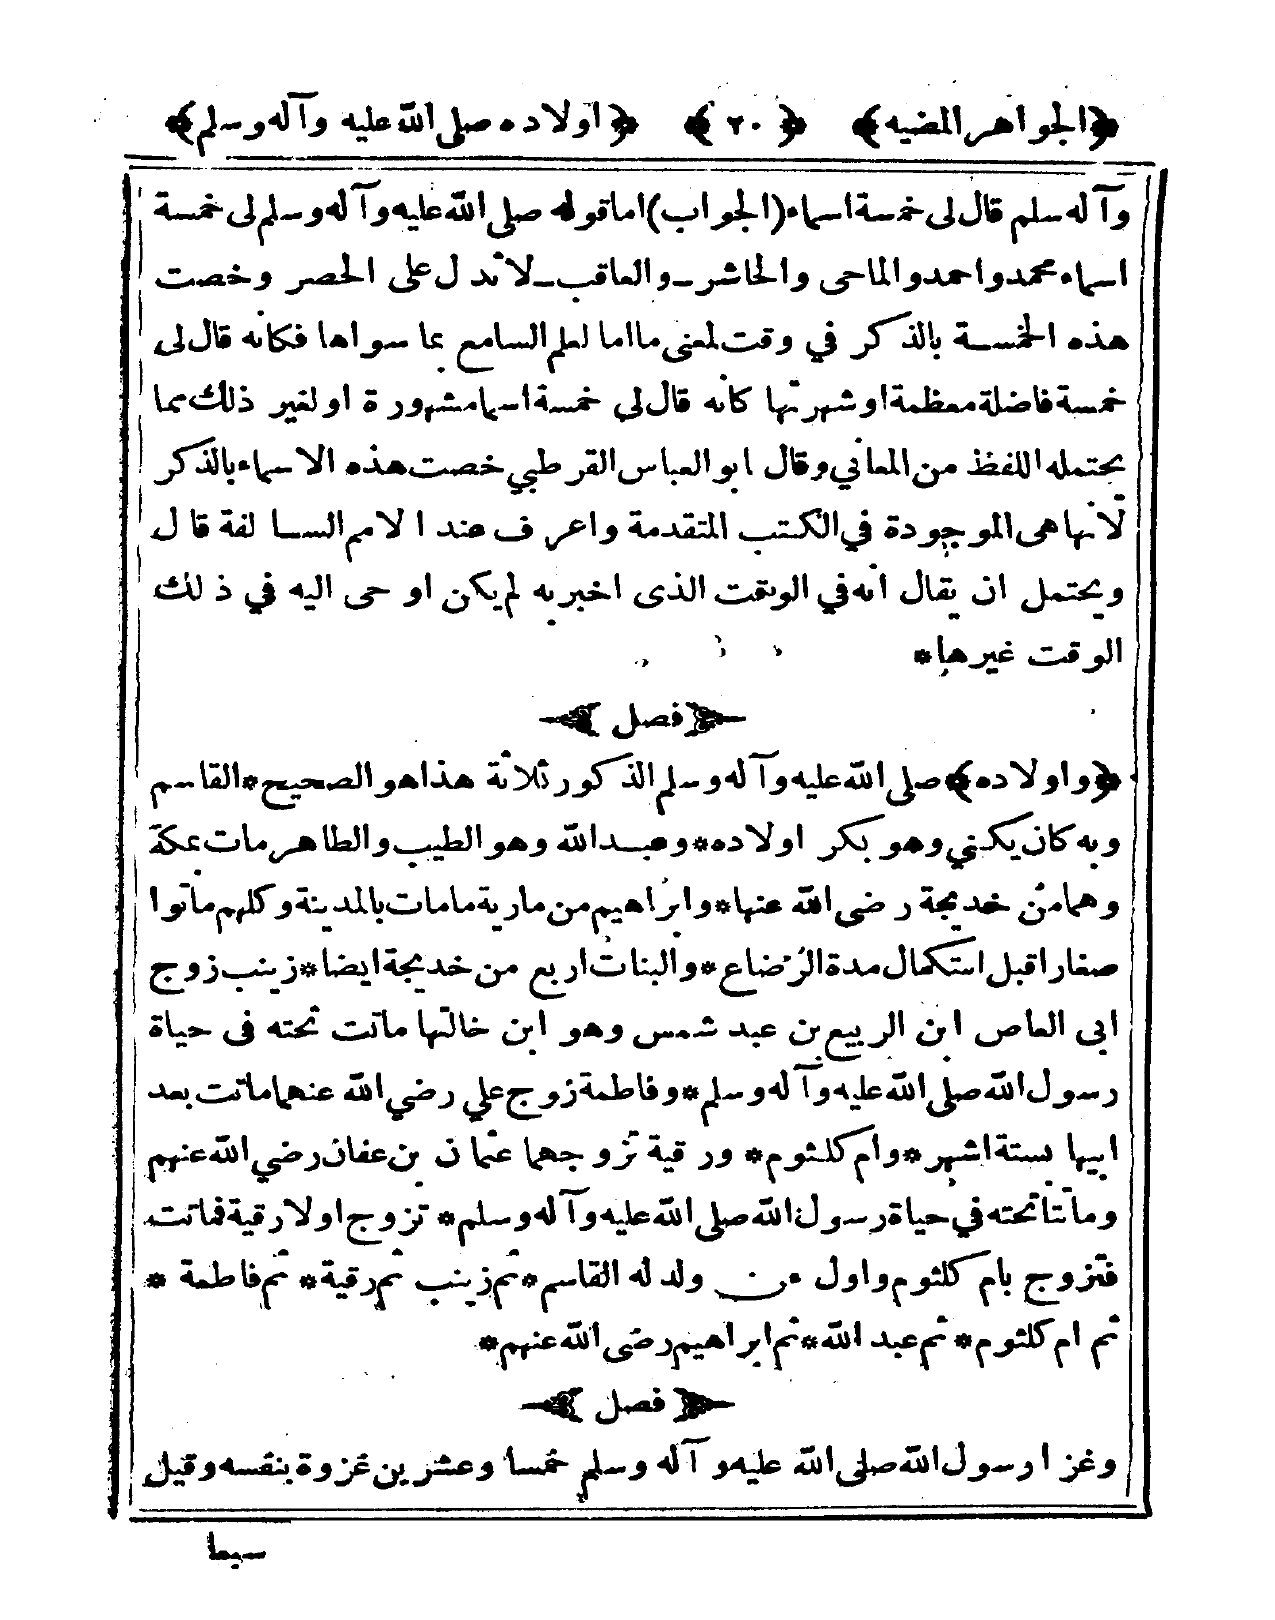 ﴿الجواهر المضيه﴾ ﴿٢٠﴾ ﴿اولاده صلى الله عليه وآله وسلم﴾
وآله سلم قال لى خمسة اسماء (الجواب) اما قوله صلى الله عليه وآله وسلم لى خمسة
اسماء محمد واحمد والماحى والحاشر ـ والعاقب ـ لا تدل على الحصر وخصت
هذه الخمسة بالذكر في وقت لمعنى ما اما لعلم السامع بما سواها فكانه قال لى
خمسة فاضلة معظمة او شهرتها كانه قال لي خمسة اسما مشهورة او لغير ذلك مما
يحتمله اللفظ من المعاني وقال ابو العباس القرطبي خصت هذه الاسماء بالذكر
لانها هى الموجودة في الكتب المتقدمة واعرف عند الامم السالفة قال
ويحتمل ان يقال انه في الوقت الذى اخبر به لم يكن اوحى اليه في ذلك
الوقت غيرها*
﴿فصل﴾
﴿واولاده﴾ صلى الله عليه وآله وسلم الذكور ثلاثة هذا هو الصحيح * القاسم
وبه كان يكني وهو بكر اولاده * وعبد الله وهو الطيب والطاهر مات بمكة
وهما من خديجة رضى الله عنها * وابراهيم من مارية مامات بالمدينة وكلهم ماتوا
صغارا قبل استكمال مدة الرضاع * والبنات اربع من خديجة ايضا * زينب زوج
ابى العاص ابن الربيع بن عبد شمس وهو ابن خالتها ماتت تحته فى حياة
رسول الله صلى الله عليه وآله وسلم * وفاطمة زوج علي رضي الله عنهما ماتت بعد
ابيها بستة اشهر * وام كلثوم * ورقية تزوجهما عثمان بن عفان رضي الله عنهم
وماتتا تحته في حياة رسول الله صلى الله عليه وآله وسلم * تزوج اولا رقية فماتت
فتزوج بام كلثوم واول من ولد له القاسم * ثم زينب ثم رقية * ثم فاطمة *
ثم ام كلثوم * ثم عبد الله * ثم ابراهيم رضى الله عنهم *
﴿فصل﴾
وغزا رسول الله صلى الله عليه وآله وسلم خمسا وعشرين غزوة بنفسه وقيل
سبعا